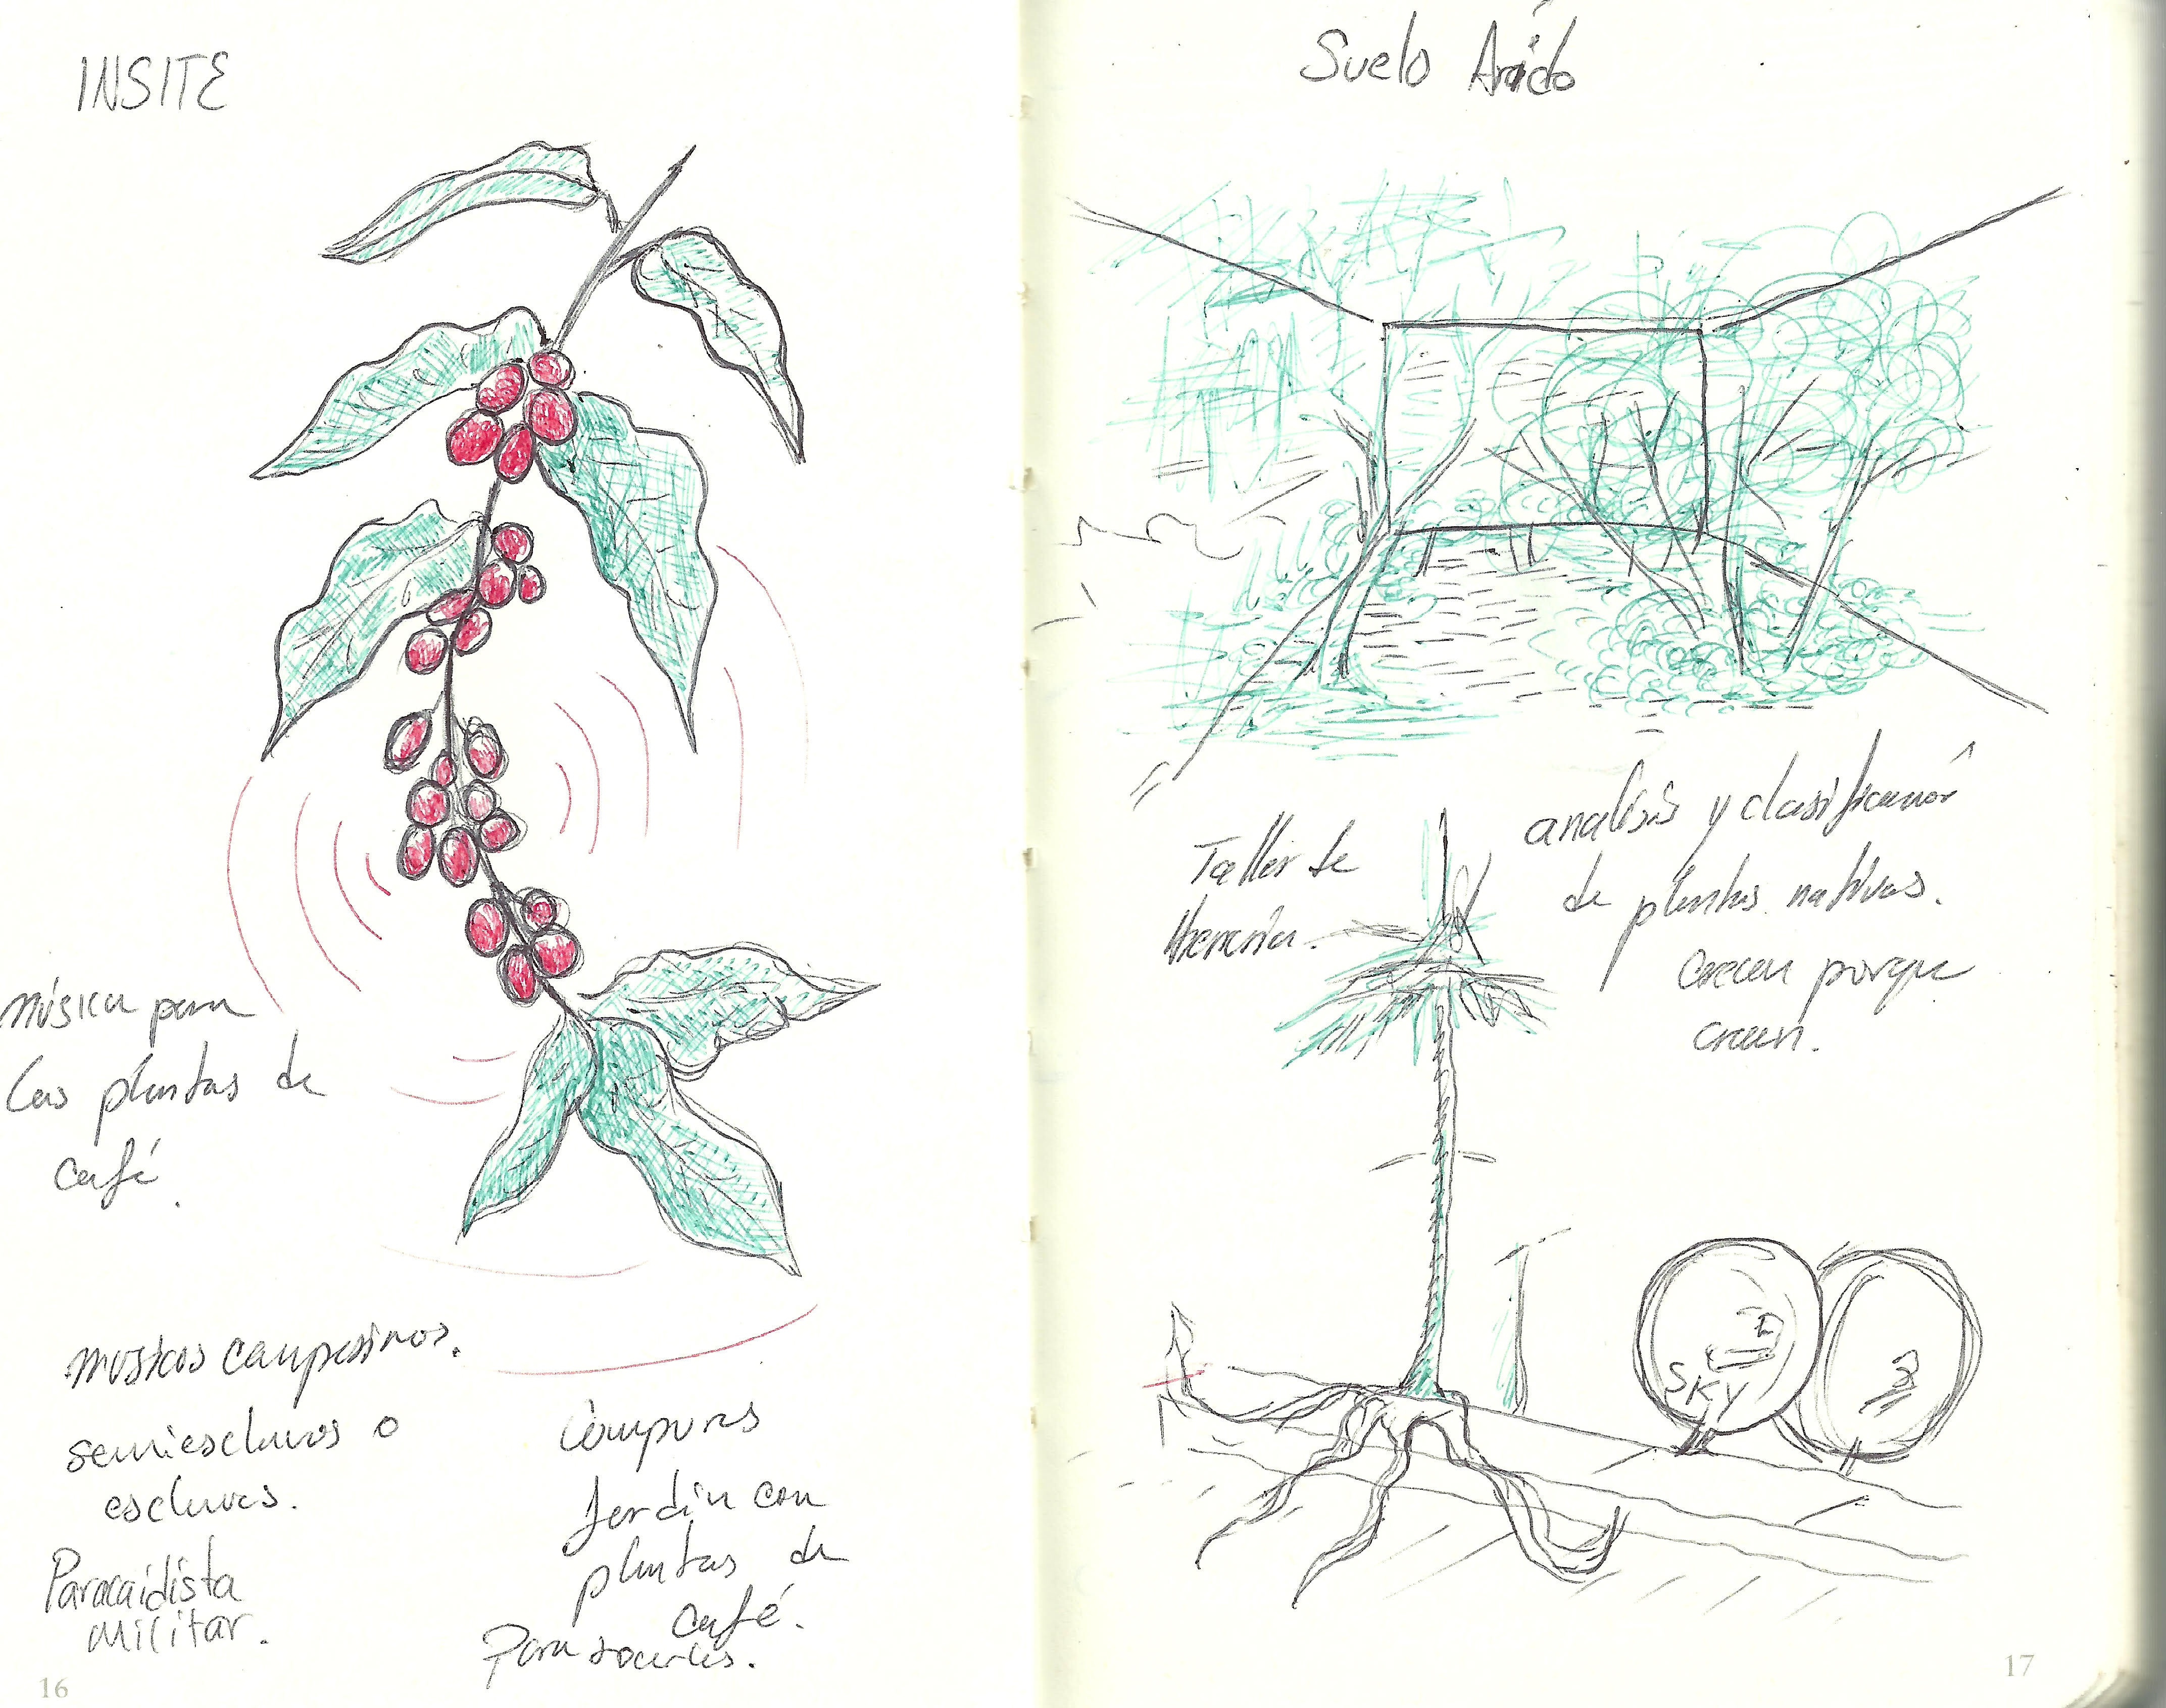 INSITE
música para
las plantas de
café.
musicos campesinos.
semiesclavos o
esclavos.
Paracaidista
militar.
Jardin con
plantas de
café.
Para tocarles.
16
Suelo Arido
Taller de
analisis y clasificación
de plantas nativas.
crecen porque
creen.
SKY
17